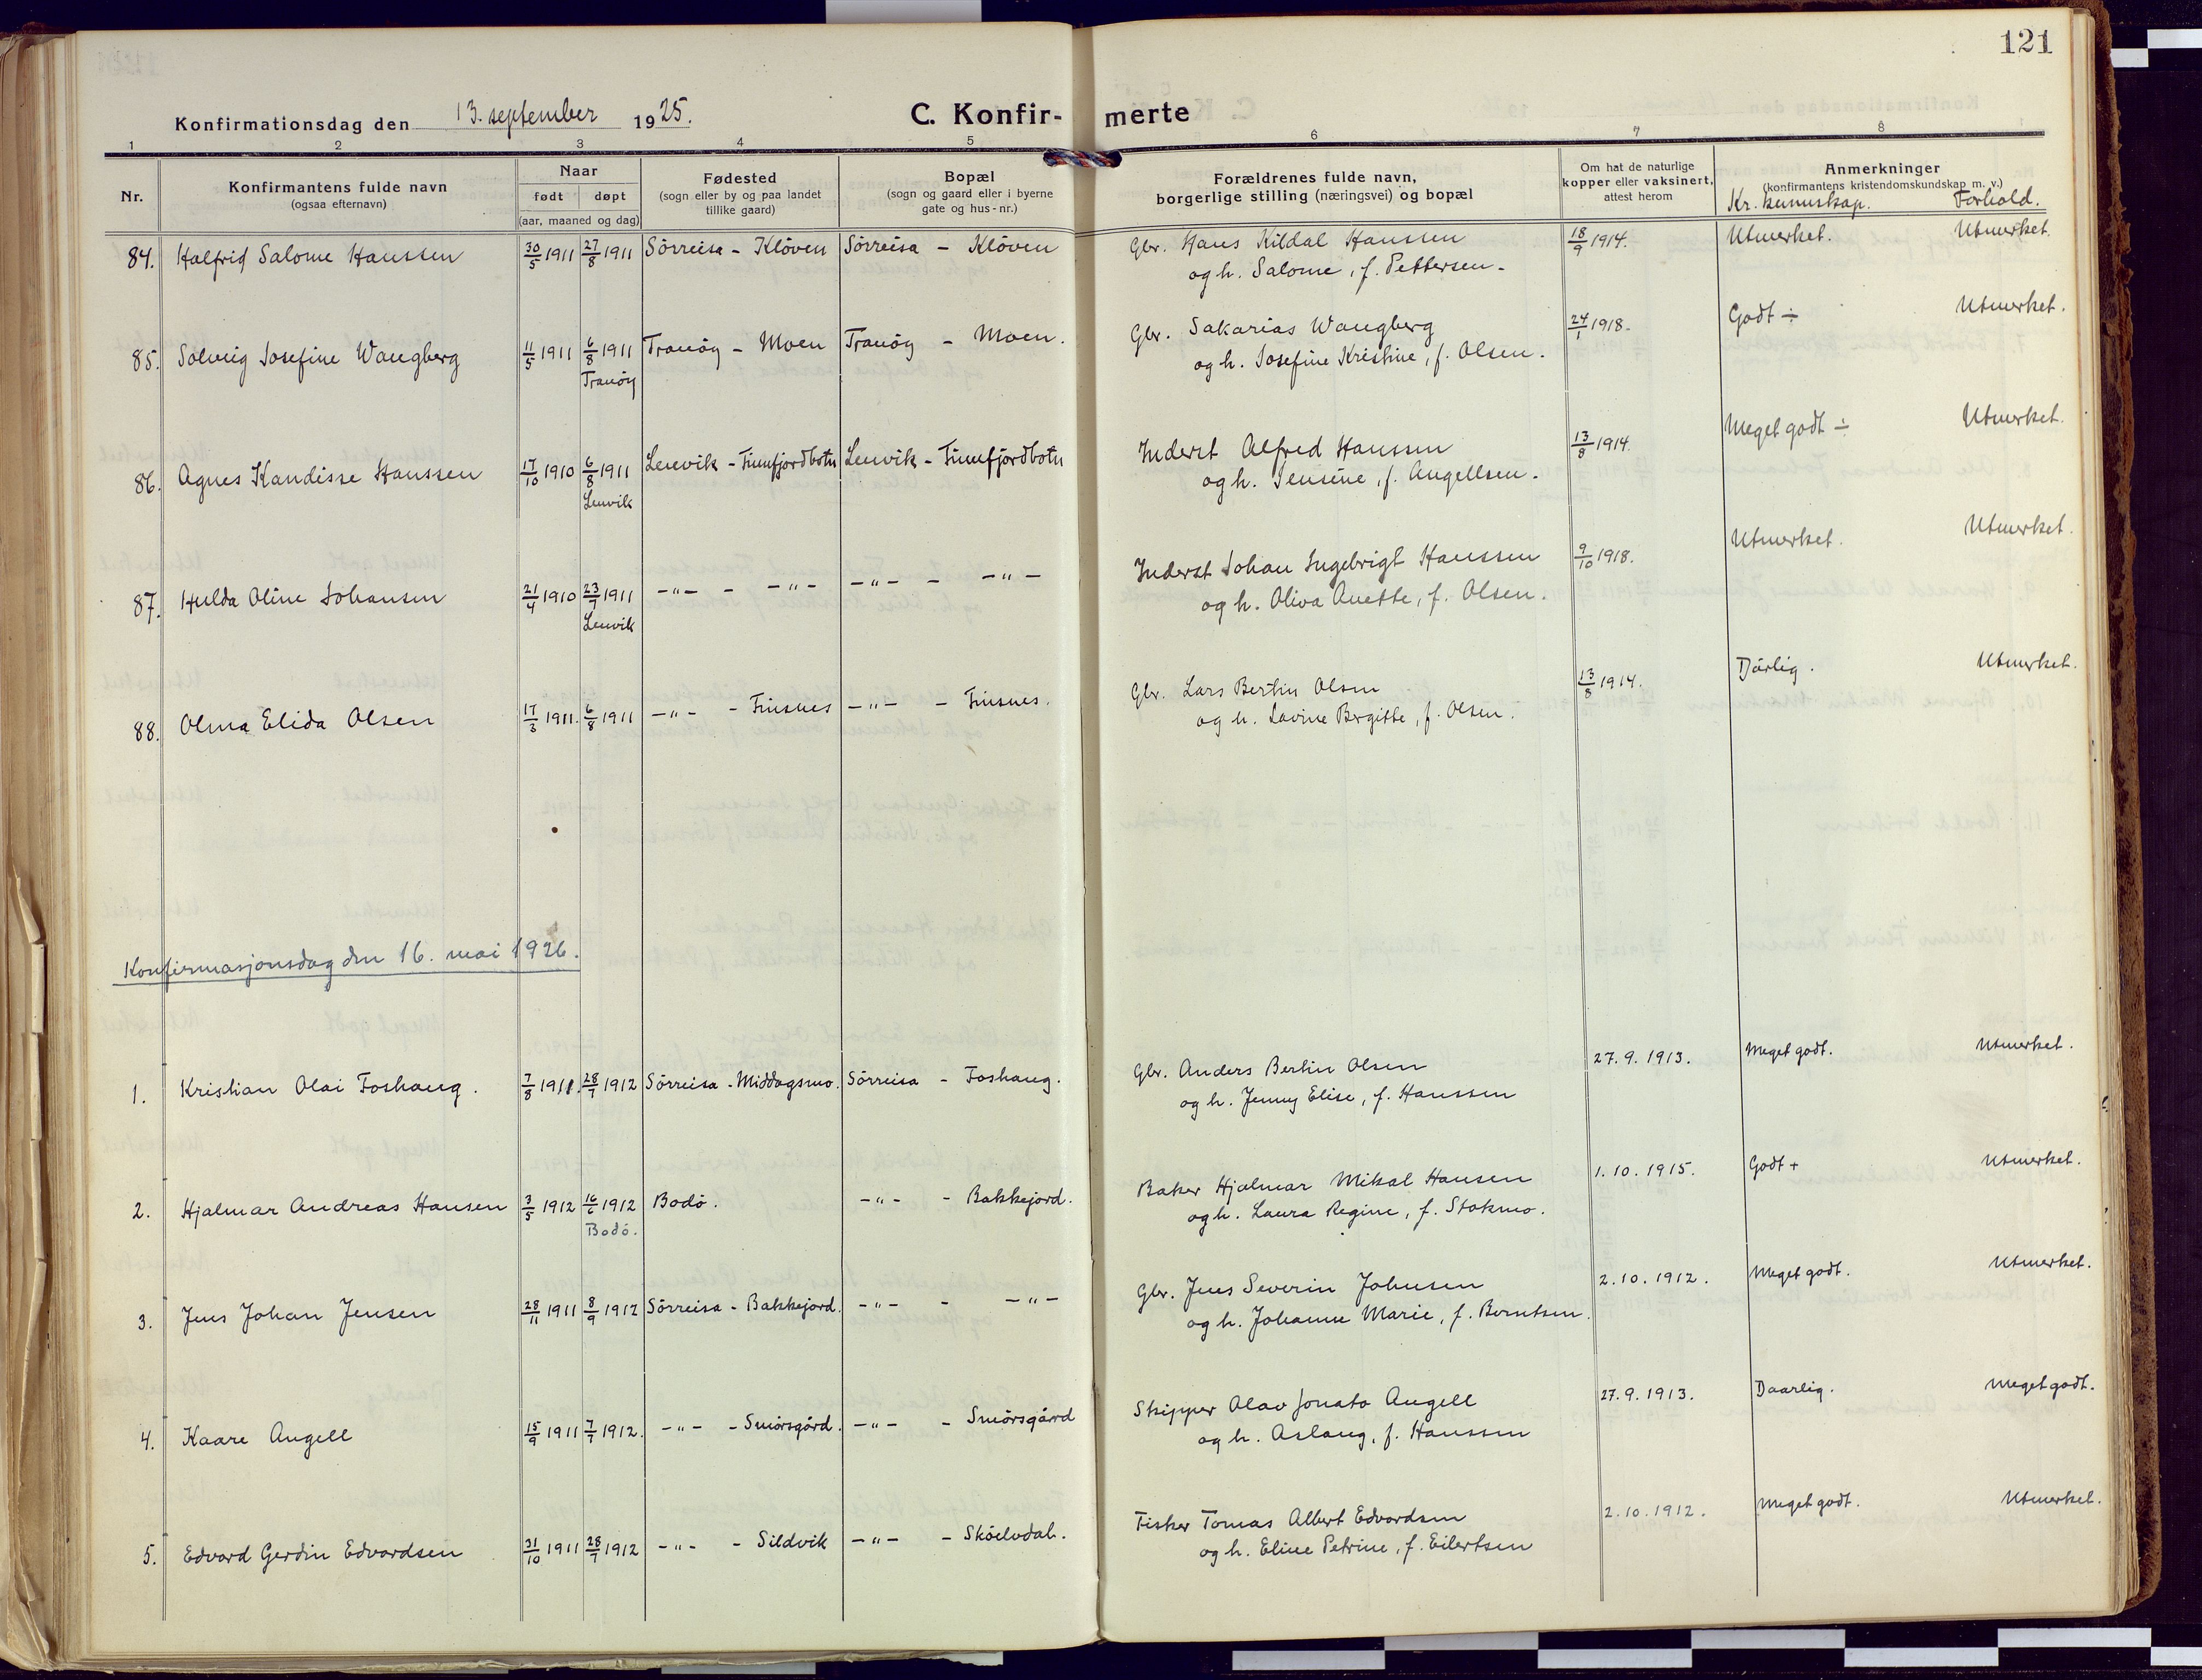 121
Konfirmationsdag den 13. september 1925.
C. Konfir- merte
1 2 3 4 5 6 7 8
Nr.
Konfirmantens fulde navn
(ogsaa efternavn)
Naar
født døpt
(aar, maaned og dag)
Fødested
(sogn eller by og paa landet
tillike gaard)
Bopæl
(sogn og gaard eller i byerne
gate og hus-nr.)
Forældrenes fulde navn,
borgerlige stilling (næringsvei) og bopæl
Om hat de naturlige
kopper eller vaksinert,
attest herom
Anmerkninger
(konfirmantens kristendomskundskap m. v.)
Kr. kunnskap. Forhold.
84. Halfrid Salome Hanssen 30/5 1911 27/8 1911 Sörreisa - Klöven Sörreisa - Klöven Gbr. Hans Kildal Hanssen 18/9 1914. Utmerket. Utmerket.
og h. Salome, f. Pettersen.
85. Solveig Josefine Wangberg 11/5 1911 6/8 1911 Tranöy - Moen Tranöy - Moen. Gbr. Sakarias Wangberg 24/1 1918. Godt ÷ Utmerket.
Tranöy og h. Josefine Kristine, f. Olsen.
86. Agnes Kandisse Hanssen 17/10 1910 6/8 1911 Lenvik - Finnfjordbotn Lenvik - Finnfjordbotn Inderst Alfred Hanssen 13/8 1914. Meget godt ÷ Utmerket.
Lenvik og h. Jensine, f. Angellsen.
87. Hulda Oline Johansen 21/4 1910 23/7 1911 -"- - -"- -"- - -"- Inderst Johan Ingebrigt Hanssen 9/10 1918. Utmerket. Utmerket.
Lenvik og h. Oliva Anette, f. Olsen.
88. Olma Elida Olsen 17/3 1911. 6/8 1911 -"- - Finsnes -"- - Finsnes. Gbr. Lars Bertin Olsen 13/8 1914. Dårlig. Utmerket.
og h. Lavine Bergitte, f. Olsen.
Konfirmasjonsdag den 16. mai 1926.
1. Kristian Olai Foshaug. 7/8 1911. 28/7 1912 Sörreisa - Middagsmo. Sörreisa - Foshaug. Gbr. Anders Bertin Olsen 27.9.1913. Meget godt. Utmerket.
og h. Jenny Elise, f. Hanssen
2. Hjalmar Andreas Hansen 3/5 1912 16/6 1912 Bodö. -"- - Bakkejord. Baker Hjalmar Mikal Hansen 1.10.1915. Godt + Utmerket.
Bodö. og h. Laura Regine, f. Stokmo.
3. Jens Johan Jensen 28/11 1911 8/9 1912 Sörreisa - Bakkejord. -"- - -"- Gbr. Jens Severin Johnsen 2.10.1912. Meget godt. Utmerket.
og h. Johanne Marie, f. Berntsen.
4. Kaare Angell 15/9 1911 7/7 1912. -"- - Smörsgård. -"- - Smörsgård Skipper Olav Jonato Angell 27.9.1913. Daarlig. Meget godt.
og h. Aslaug, f. Hanssen
5. Edvard Gerdin Edvardsen 31/10 1911 28/7 1912 -"- - Sildvik -"- - Sköelvdal. Fisker Tomas Albert Edvardsen 2.10.1912. Meget godt. Utmerket.
og h. Eline Petrine, f. Eilertsen